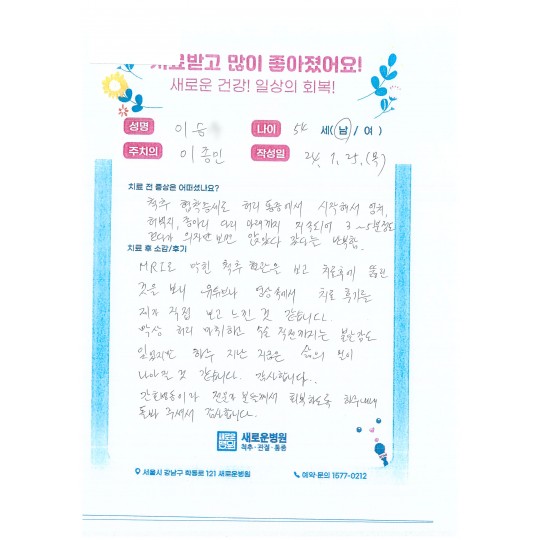 치료받고 많이 좋아졌어요!
새로운 건강! 일상의 회복!
성명 이승 나이 54 세( 남 / 여 )
주치의 이종민 작성일 24. 7. 25. (목)
치료 전 증상은 어떠셨나요?
척추 협착증세로 허리 통증에서 시작해서 엉치,
허벅지, 종아리 다리 아래까지 지속되어 3~5분정도
걷다가 의자만 보면 앉았다 걷다를 반복함.
치료 후 소감/후기
MRI로 막힌 척추 혈관을 보고 치료후에 뚫린
것을 보니 유튜브나 영상속에서 치료 후기를
제가 직접 보고 느낀것 같습니다.
막상 허리 마취하고 수술 직전까지는 불안감도
있었지만 하루 지난 지금은 삶의 질이
나아진 것 같습니다. 감사합니다.
간호 선생님들께서 회복하도록 하루내내
돌봐 주셔서 감사합니다.
새로운병원
척추·관절·통증
서울시 강남구 학동로 121 새로운병원
예약·문의 1577-0212